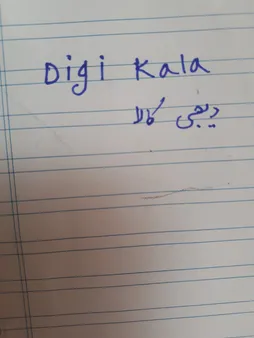 Digi Kala
دیجی کالا